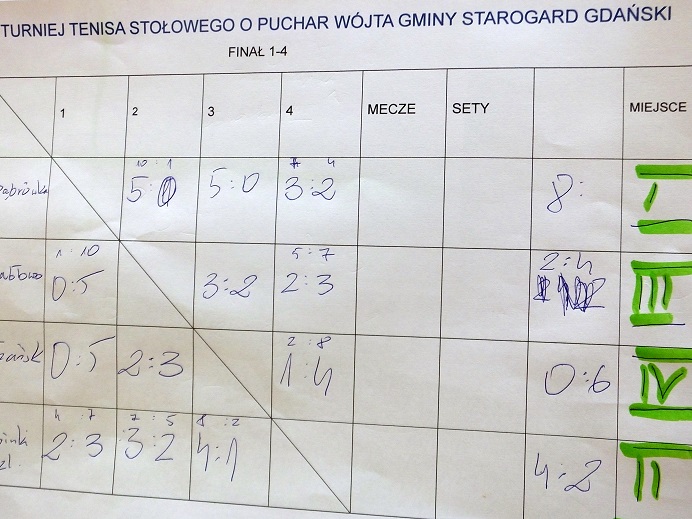 TURNIEJ TENISA STOŁOWEGO O PUCHAR WÓJTA GMINY STAROGARD GDAŃSKI
FINAŁ 1-4
1 2 3 4 MECZE SETY MIEJSCE
10 : 1 4
5:0 5:0 3:2 8: I
1 : 10 5 : 7
0:5 3:2 2:3 2:4 III
2 : 8
0:5 2:3 1:4 0:6 IV
4 : 7 7 : 5 8 : 2
2:3 3:2 4:1 4:2 II